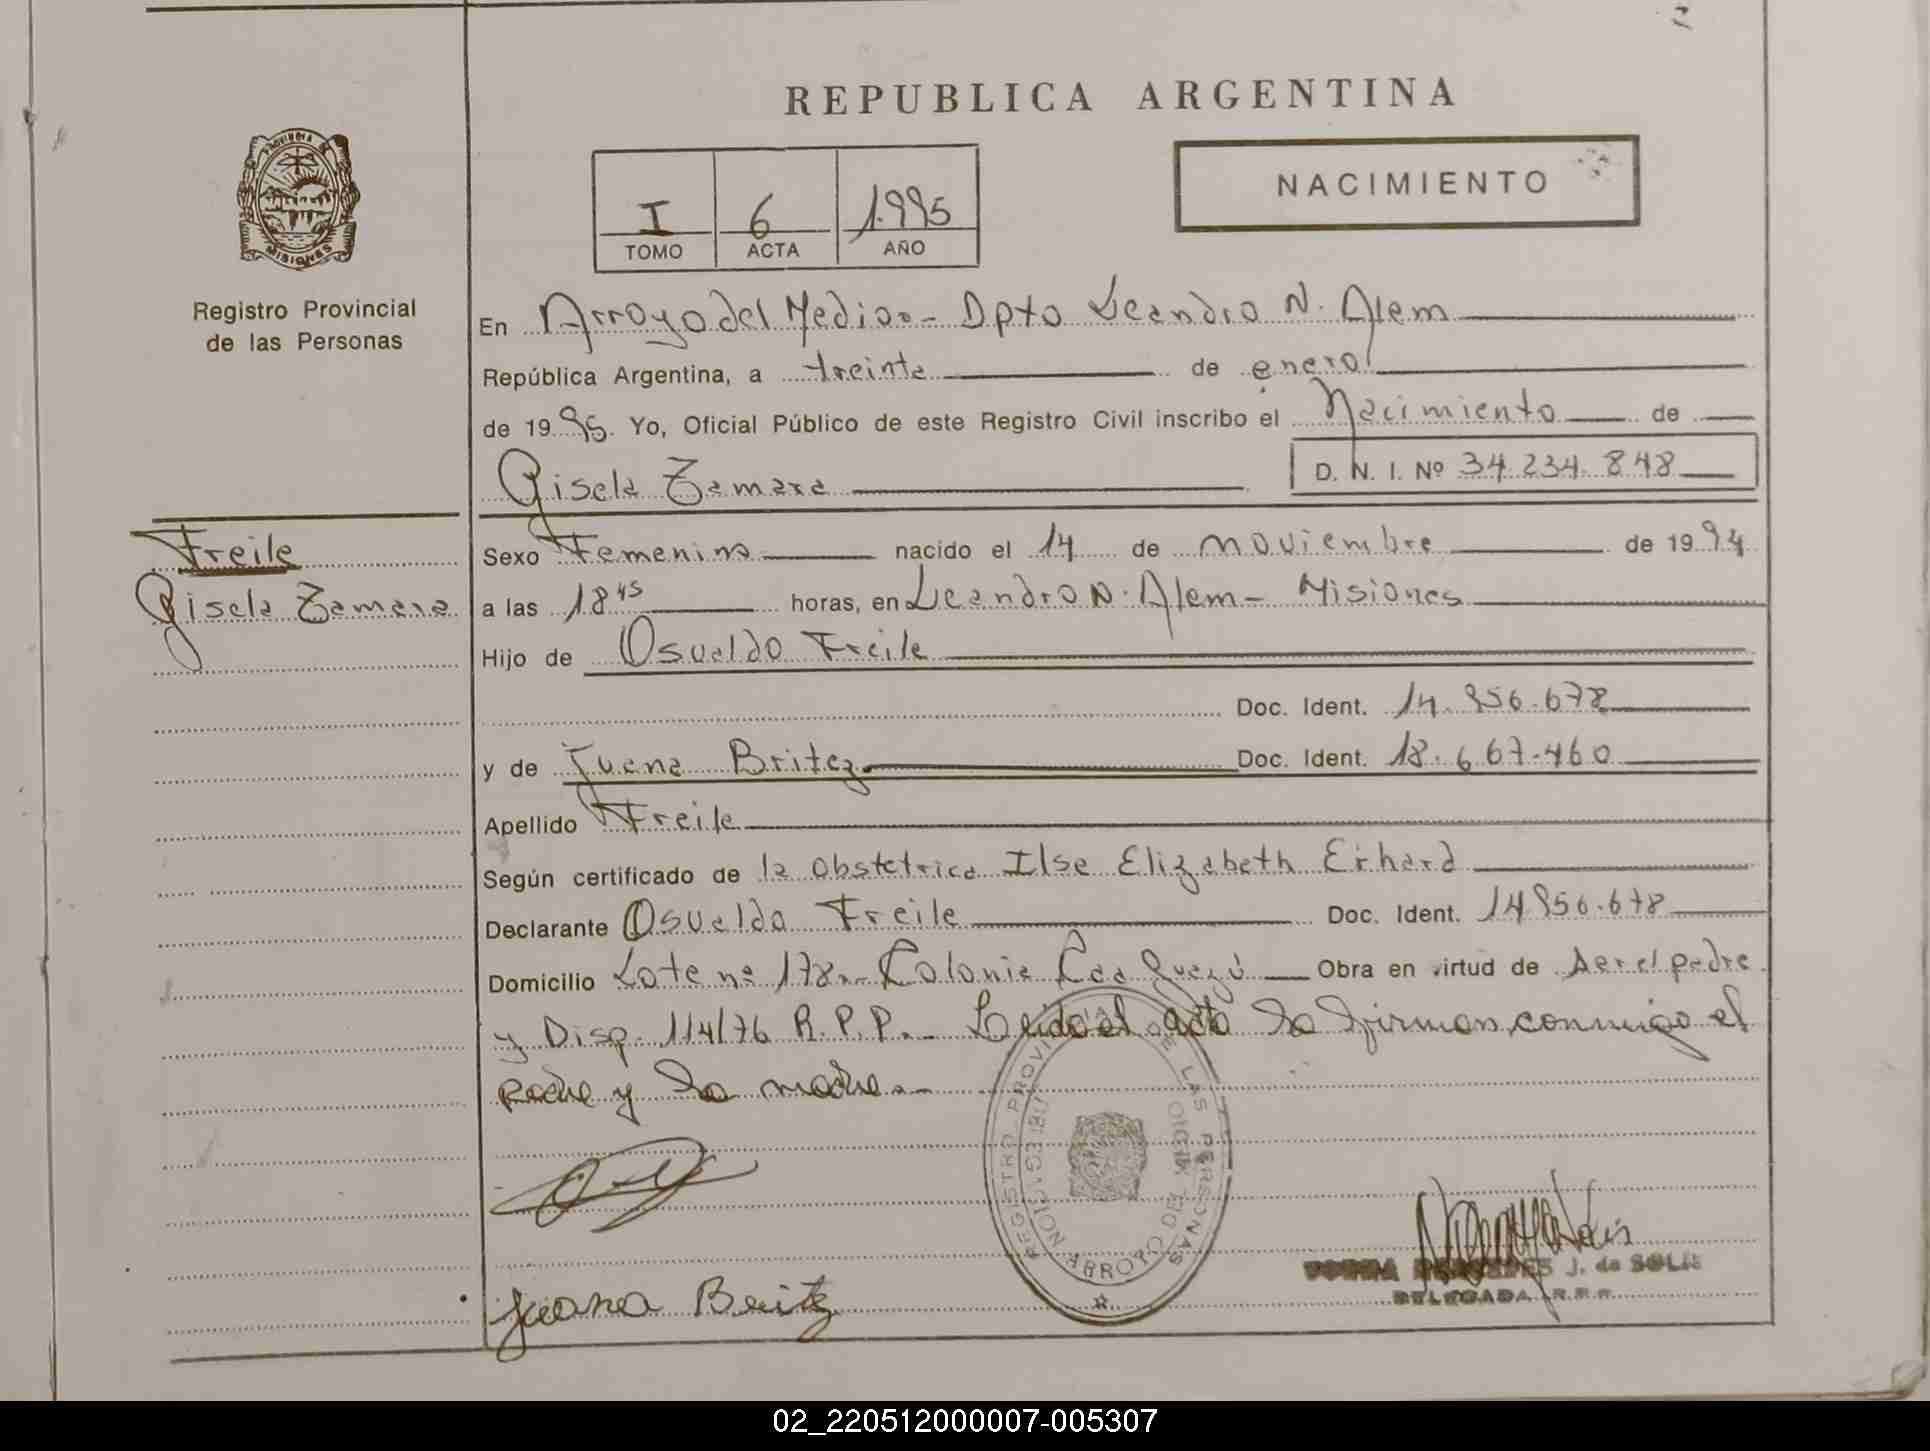 REPUBLICA ARGENTINA
PROVINCIA DE
MISIONES
Registro Provincial
de las Personas
I 6 1.995
TOMO ACTA AÑO
NACIMIENTO
En Arroyo del Medio.- Dpto Leandro N. Alem
República Argentina, a treinta de enero
de 1995. Yo, Oficial Público de este Registro Civil inscribo el Nacimiento de
Gisela Tamara D. N. I. Nº 34.234.848
Freile
Gisela Tamara
Sexo Femenino nacido el 14 de noviembre de 1994
a las 18 45 horas, en Leandro N. Alem - Misiones
Hijo de Osvaldo Freile
Doc. Ident. 14.956.678
y de Juana Britez Doc. Ident. 18.667.460
Apellido Freile
Según certificado de la obstetrica Ilse Elizabeth Erhard
Declarante Osvaldo Freile Doc. Ident. 14.956.678
Domicilio Lote nº 178.- Colonia Caa Guazú Obra en virtud de ser el padre
y Disp. 114/76 R.P.P.- Leida el acta la firman conmigo el
padre y la madre.-
REGISTRO PROVINCIAL DE LAS PERSONAS
DELEGACION ARROYO DEL MEDIO
Juana Britez
J. de SOLIS
DELEGADA R.P.P.
02_220512000007-005307